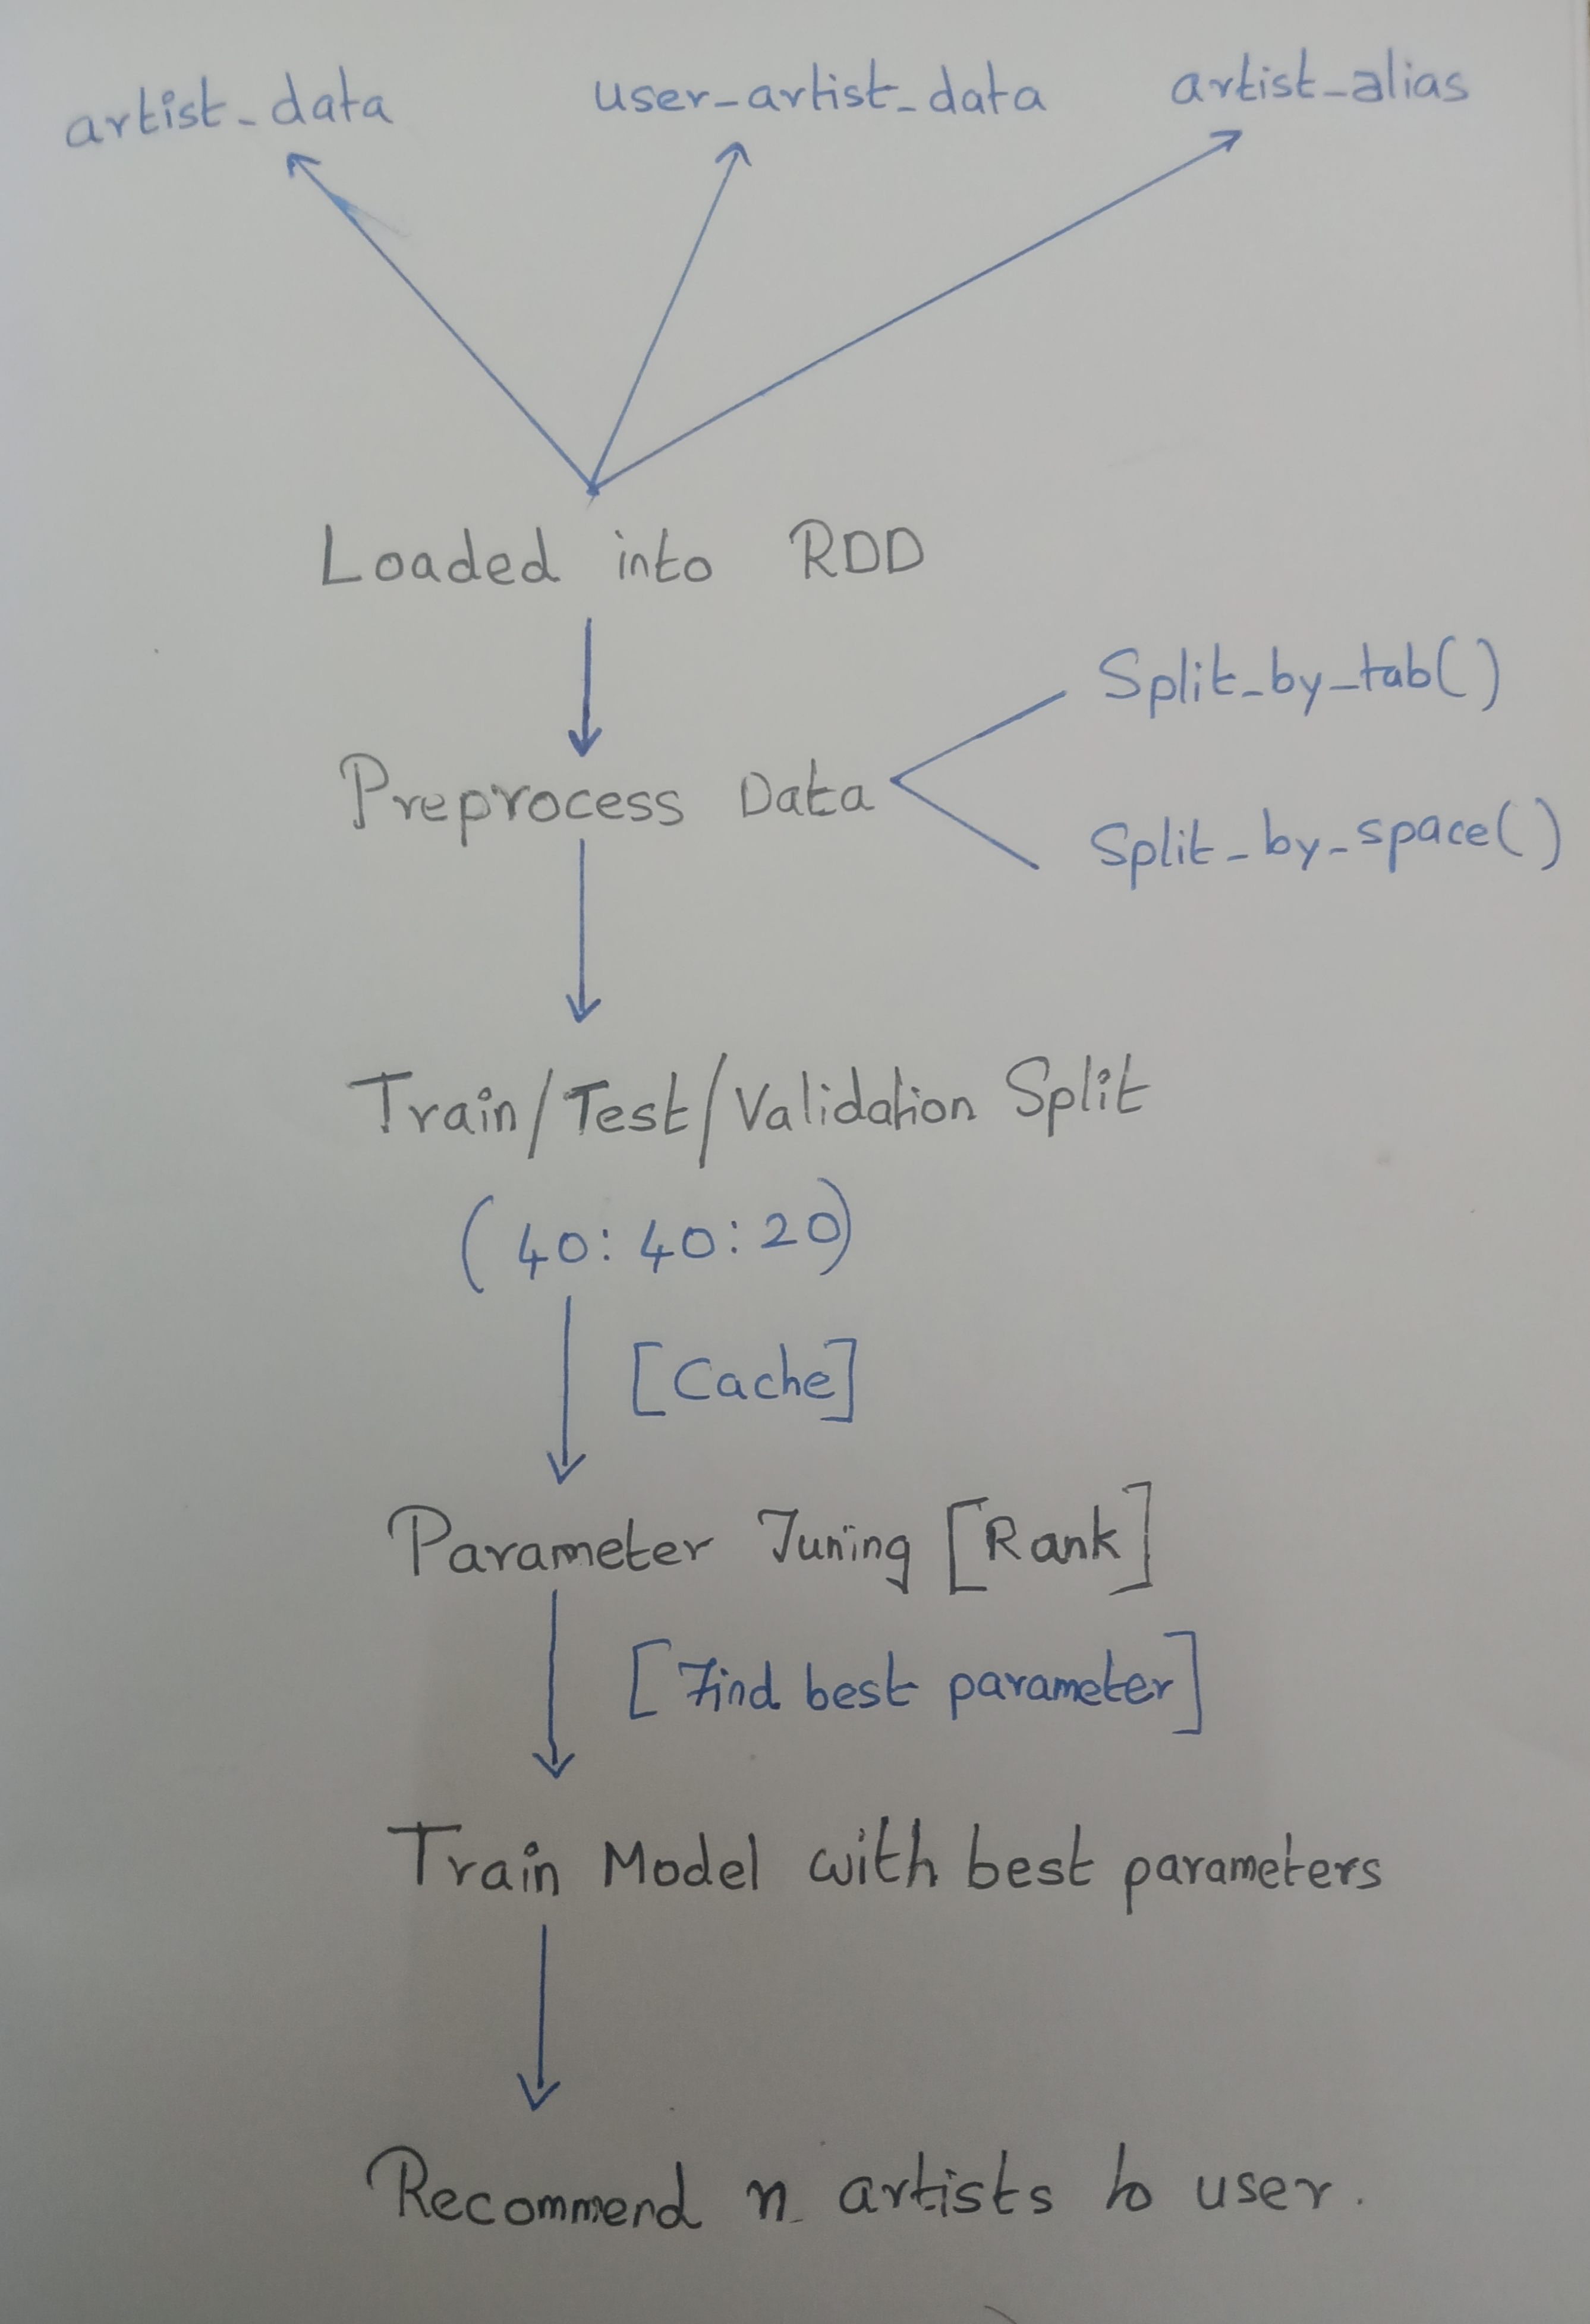 artist_data user_artist_data artist_alias
Loaded into RDD
Split_by_tab()
Preprocess Data
Split_by_space()
Train/Test/Validation Split
(40:40:20)
[Cache]
Parameter Tuning [Rank]
[Find best parameter]
Train Model with best parameters
Recommend n artists to user.